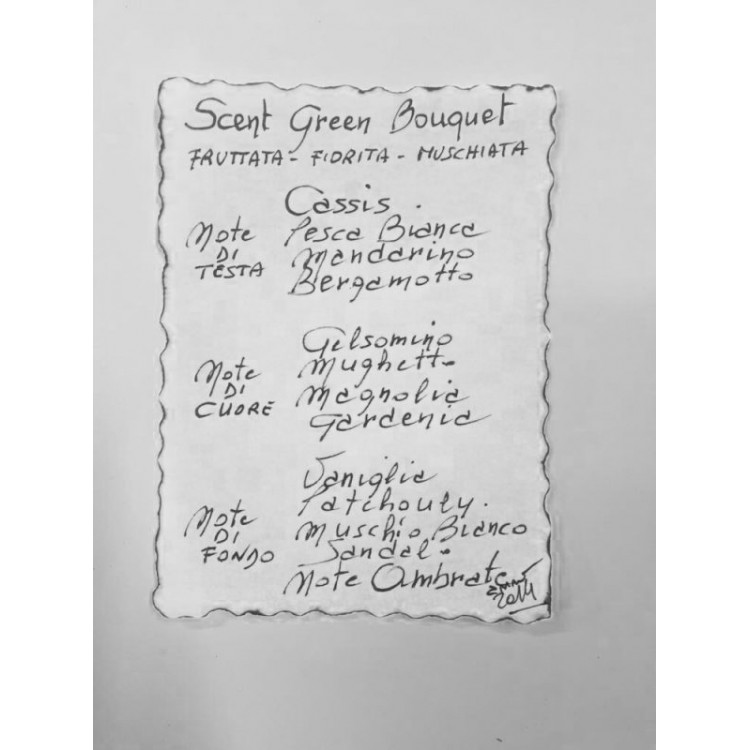 Scent Green Bouquet
FRUTTATA - FIORITA - MUSCHIATA
Cassis.
Note DI TESTA
Pesca Bianca
Mandarino
Bergamotto
Gelsomino
Note DI CUORE
Mughetto
Magnolia
Gardenia
Vaniglia
Patchouly.
Note DI FONDO
Muschio Bianco
Sandalo
Note Ambrate
2014